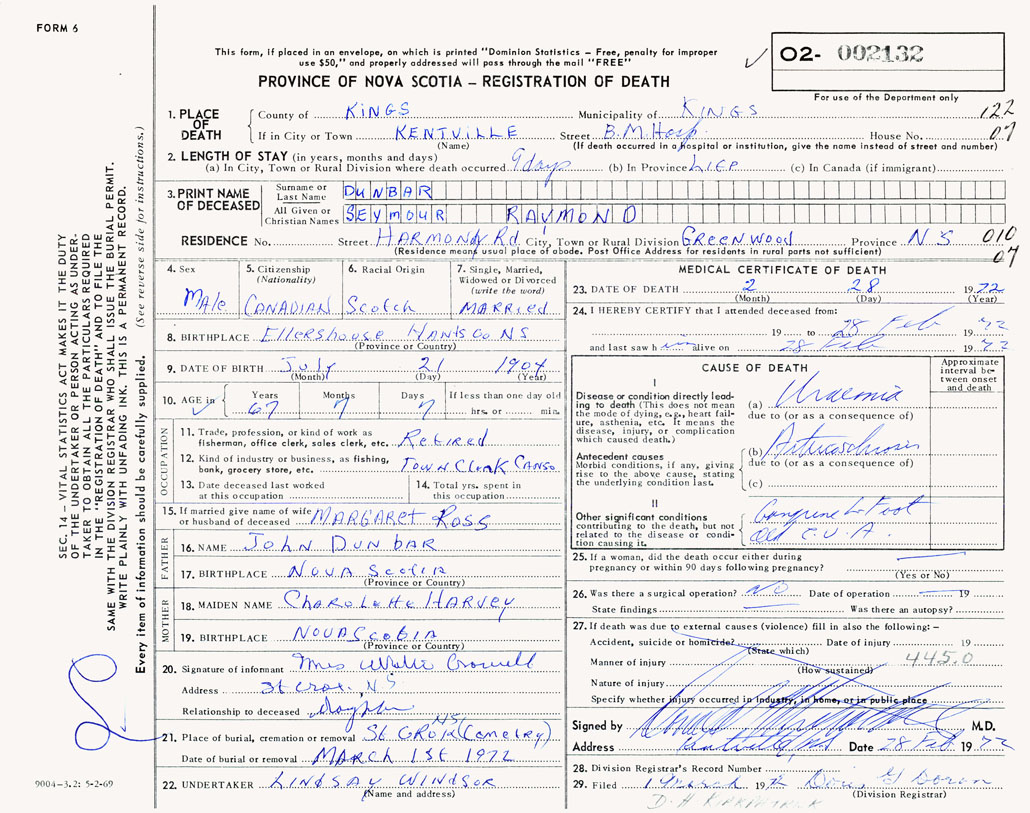 FORM 6
This form, if placed in an envelope, on which is printed "Dominion Statistics – Free, penalty for improper
use $50," and properly addressed will pass through the mail "FREE"
O2- 092132
PROVINCE OF NOVA SCOTIA – REGISTRATION OF DEATH
For use of the Department only
1. PLACE OF DEATH
County of KINGS Municipality of KINGS 122
If in City or Town KENTVILLE Street B.M. Hosp. House No. 07
(Name) (If death occurred in a hospital or institution, give the name instead of street and number)
2. LENGTH OF STAY (in years, months and days)
(a) In City, Town or Rural Division where death occurred 9 days (b) In Province LIFE (c) In Canada (if immigrant)
3. PRINT NAME OF DECEASED
Surname or Last Name DUNBAR
All Given or Christian Names SEYMOUR RAYMOND
RESIDENCE No. Street HARMONY Rd. City, Town or Rural Division GREENWOOD Province NS 010
(Residence means usual place of abode. Post Office Address for residents in rural ports not sufficient) 07
4. Sex Male
5. Citizenship (Nationality) CANADIAN
6. Racial Origin Scotch
7. Single, Married, Widowed or Divorced (write the word) MARRIED
8. BIRTHPLACE Ellershouse Hants Co NS
(Province or Country)
9. DATE OF BIRTH July 21 1904
(Month) (Day) (Year)
10. AGE in Years 67 Months 7 Days 7 If less than one day old hrs. or min.
OCCUPATION
11. Trade, profession, or kind of work as fisherman, office clerk, sales clerk, etc. Retired
12. Kind of industry or business, as fishing, bank, grocery store, etc. Town Clerk Canso
13. Date deceased last worked at this occupation
14. Total yrs. spent in this occupation
15. If married give name of wife or husband of deceased MARGARET ROSS
FATHER
16. NAME JOHN DUNBAR
17. BIRTHPLACE NOVA SCOTIA
(Province or Country)
MOTHER
18. MAIDEN NAME Charolette HARVEY
19. BIRTHPLACE NOVA SCOTIA
(Province or Country)
20. Signature of informant Mrs Crowell
Address St Croix, NS
Relationship to deceased daughter
21. Place of burial, cremation or removal St CROIX (Cemetry) NS
Date of burial or removal MARCH 1st 1972
22. UNDERTAKER LINDSAY WINDSOR
(Name and address)
MEDICAL CERTIFICATE OF DEATH
23. DATE OF DEATH 2 28 1972
(Month) (Day) (Year)
24. I HEREBY CERTIFY that I attended deceased from:
19 to 28 Feb 1972
and last saw him alive on 28 Feb 1972
CAUSE OF DEATH
Approximate interval between onset and death
I
Disease or condition directly leading to death (This does not mean the mode of dying, e.g., heart failure, asthenia, etc. It means the disease, injury, or complication which caused death.)
(a) Uraemia
due to (or as a consequence of)
Antecedent causes
Morbid conditions, if any, giving rise to the above cause, stating the underlying condition last.
(b) Arteriosclerosis
due to (or as a consequence of)
(c)
II
Other significant conditions contributing to the death, but not related to the disease or condition causing it.
Gangrene L Foot
Old C.V.A.
25. If a woman, did the death occur either during pregnancy or within 90 days following pregnancy?
(Yes or No)
26. Was there a surgical operation? NO Date of operation 19
State findings Was there an autopsy?
27. If death was due to external causes (violence) fill in also the following: –
Accident, suicide or homicide? Date of injury 19
(State which)
Manner of injury 445.0
(How sustained)
Nature of injury
Specify whether injury occurred in industry, in home, or in public place
Signed by M.D.
Address Kentville, NS Date 28 Feb 1972
28. Division Registrar's Record Number
29. Filed 1 March 1972 Doran
(Division Registrar)
D. H. KIRKPATRICK
SEC. 14 – VITAL STATISTICS ACT MAKES IT THE DUTY
OF THE UNDERTAKER OR PERSON ACTING AS UNDER-
TAKER TO OBTAIN ALL THE PARTICULARS REQUIRED
IN THE "REGISTRATION OF DEATH" AND TO FILE THE
SAME WITH THE DIVISION REGISTRAR WHO SHALL ISSUE THE BURIAL PERMIT.
WRITE PLAINLY WITH UNFADING INK. THIS IS A PERMANENT RECORD.
Every item of information should be carefully supplied. (See reverse side for instructions.)
9004–3.2: 5-2-69